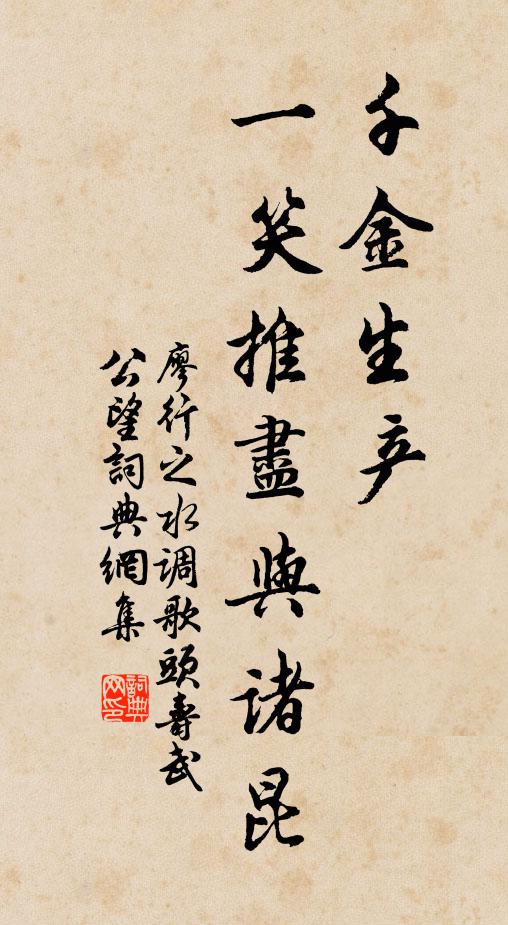 千金生产
一笑推盡與諸昆
廖行之水调歌頭壽武
公望詞典網集
詞典网印